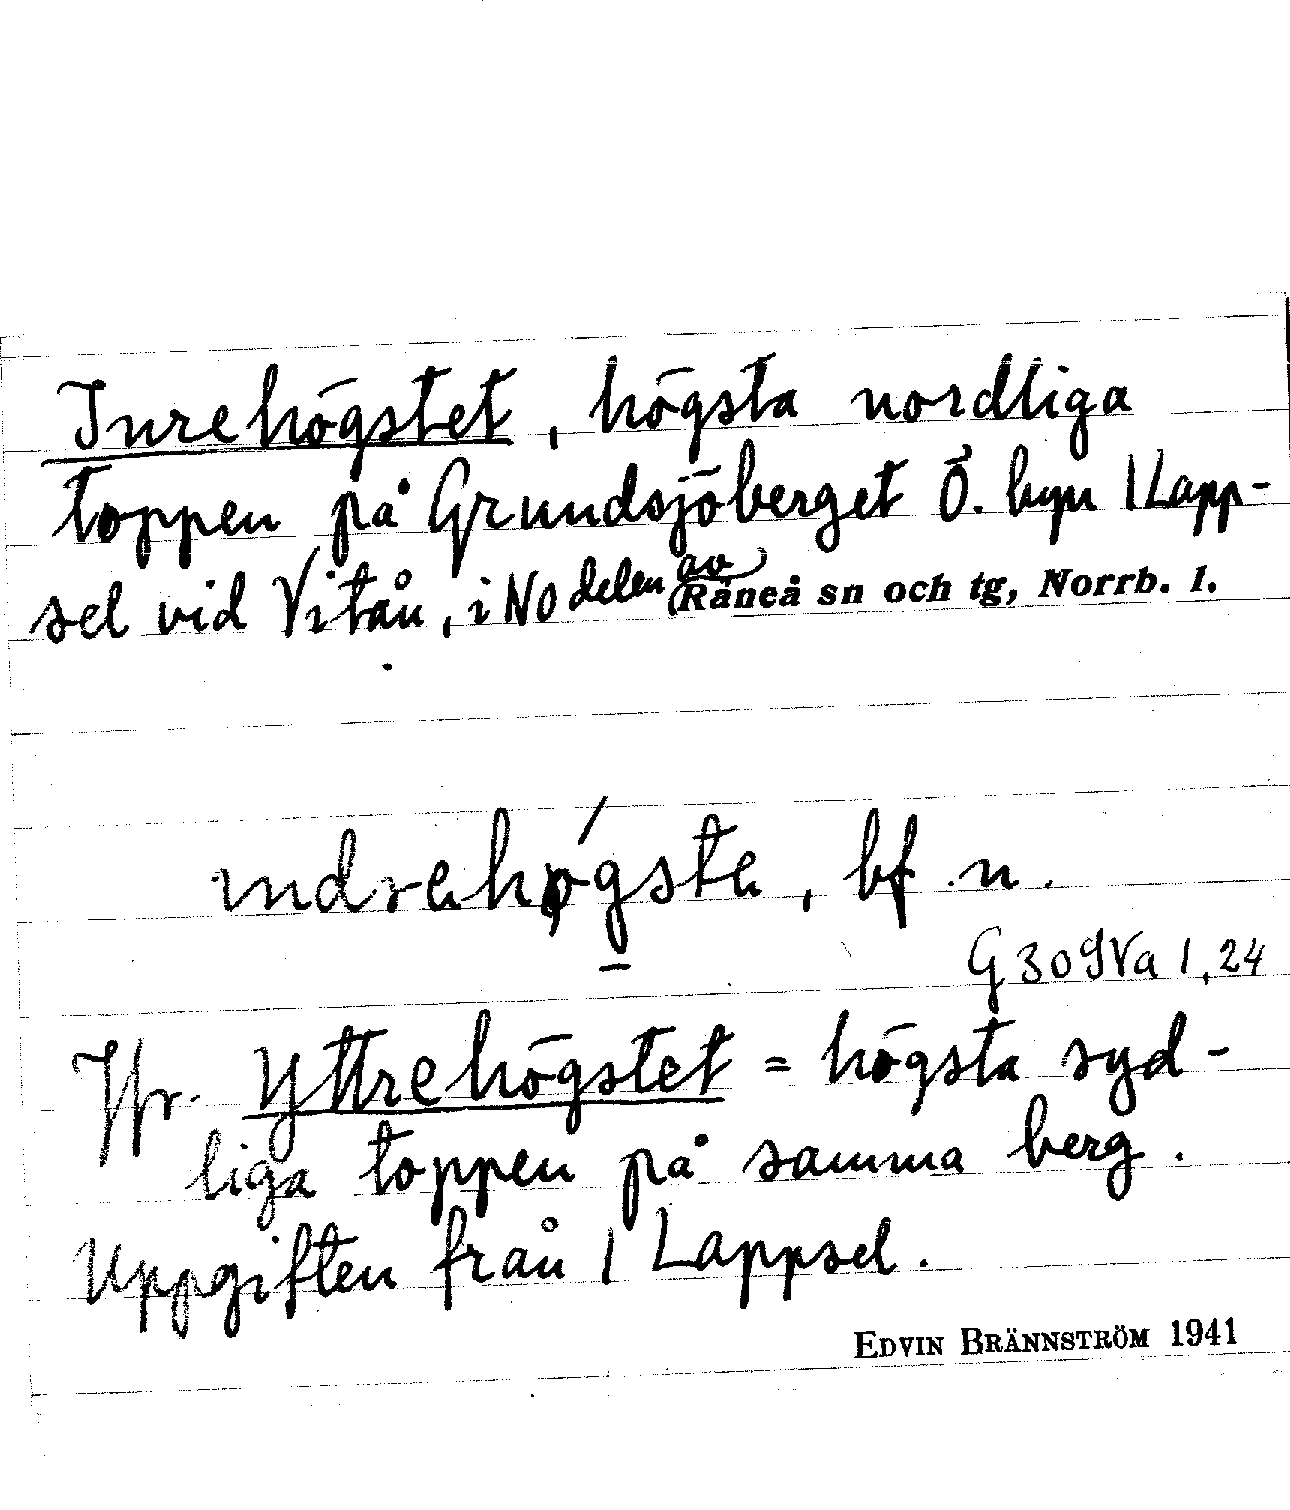 Inrehögstet, högsta nordliga
toppen på Grundsjöberget Ö. byn 1 Lapp-
sel vid Vitån, i NO delen av Råneå sn och tg, Norrb. l.
indrehøgste, bf. n.
G 309Va 1,24
Jfr. Yttrehögstet = högsta syd-
liga toppen på samma berg.
Uppgiften från 1 Lappsel.
EDVIN BRÄNNSTRÖM 1941